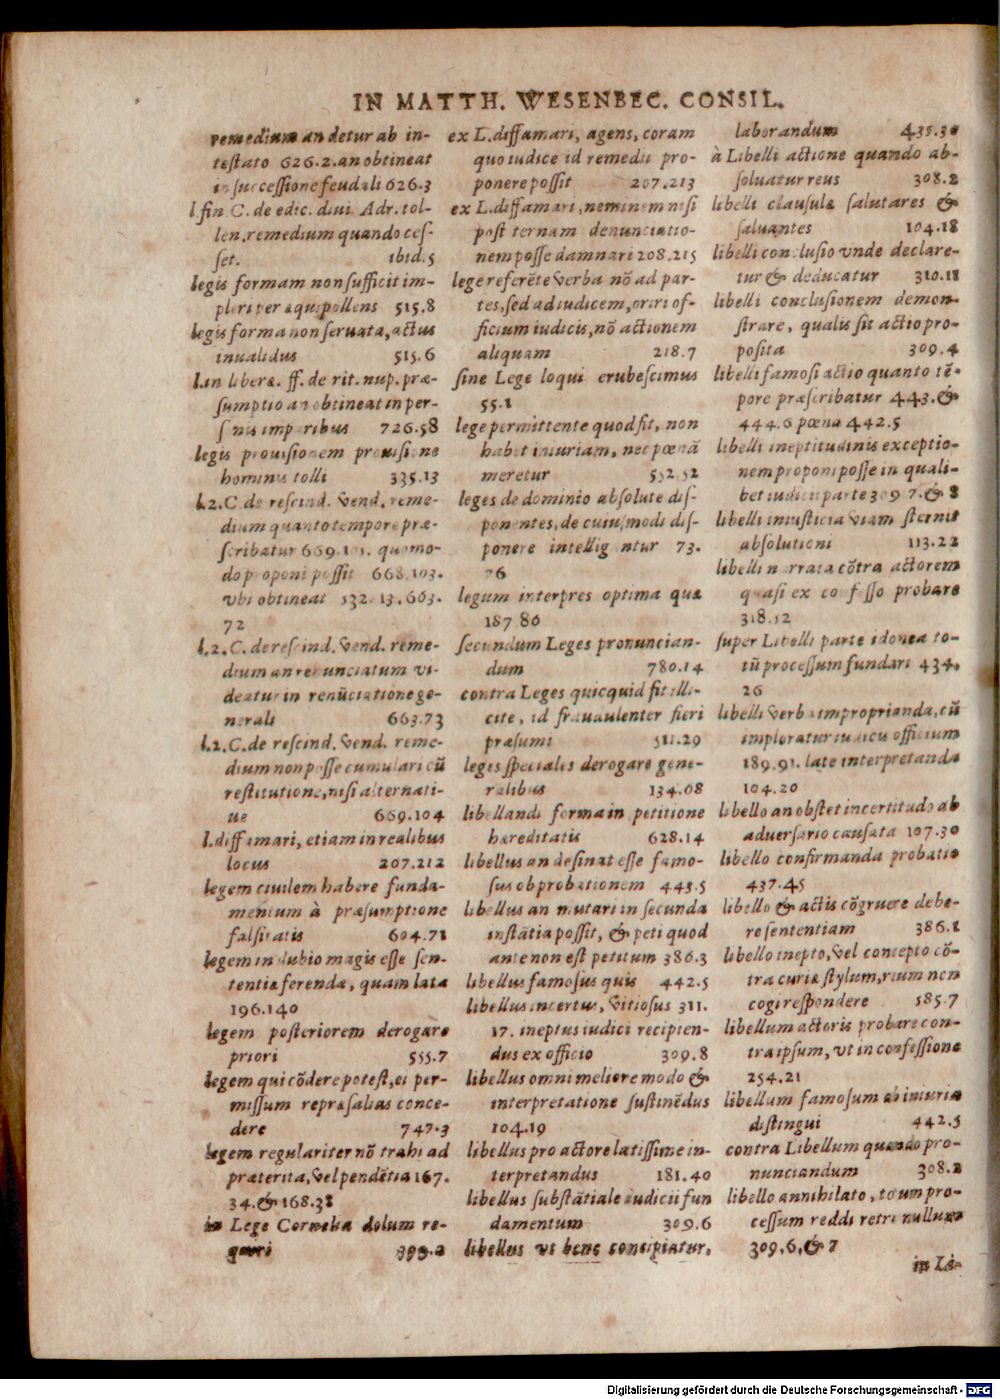 IN MATTH. WESENBEC. CONSIL.
remedium an detur ab in-
testato 626.2. an obtineat
in successione feudali 626.3
l. fin C. de edic. diui Adr. tol-
len. remedium quando ces-
set. ibid.5
legis formam non sufficit im-
pleri per æquipollens 515.8
legis forma non seruata, actus
inualidus 515.6
l. in liberæ. ff. de rit. nup. præ-
sumptio an obtineat in per-
sonis imparibus 726.58
legis prouisionem prouisione
hominis tolli 335.13
l.2. C. de rescind. vend. reme-
dium quanto tempore præ-
scribatur 669.101. quomo-
do proponi possit 668.103.
vbi obtineat 532.13.663.
72
l.2. C. de rescind. vend. reme-
dium an renunciatum vi-
deatur in renūciatione ge-
nerali 663.73
l.2. C. de rescind. vend. reme-
dium non posse cumulari cū
restitutione, nisi alternati-
ue 669.104
l. diffamari, etiam in realibus
locus 207.212
legem ciuilem habere funda-
mentum à præsumptione
falsitatis 604.71
legem in dubio magis esse sen-
tentia ferenda, quam lata
196.140
legem posteriorem derogare
priori 555.7
legem qui cōdere potest, ei per-
missum repræsalias conce-
dere 747.3
legem regulariter nō trahi ad
præterita, vel pendētia 167.
34. & 168.38
in Lege Cornelia dolum re-
quiri 399.2
ex L. diffamari, agens, coram
quo iudice id remedii pro-
ponere possit 207.213
ex L. diffamari, neminem nisi
post ternam denunciatio-
nem posse damnari 208.215
lege referēte verba nō ad par-
tes, sed ad iudicem, oriri of-
ficium iudicis, nō actionem
aliquam 218.7
sine Lege loqui erubescimus
55.1
lege permittente quod fit, non
habet iniuriam, nec pœnā
meretur 552.52
leges de dominio absolute dis-
ponentes, de cuiusmodi dis-
ponere intelligentur 73.
76
legum interpres optima quæ
187.86
secundum Leges pronuncian-
dum 780.14
contra Leges quicquid fit illi-
cite, id fraudulenter fieri
præsumi 511.29
leges speciales derogare gene-
ralibus 134.68
libellandi forma in petitione
hæreditatis 628.14
libellus an desinat esse famo-
sus ob probationem 443.5
libellus an mutari in secunda
instātia possit, & peti quod
ante non est petitum 386.3
libellus famosus quis 442.5
libellus incertus, vitiosus 311.
17. ineptus iudici recipien-
dus ex officio 309.8
libellus omni meliore modo &
interpretatione sustinēdus
104.19
libellus pro actore latissime in-
terpretandus 181.40
libellus substātiale iudicii fun
damentum 309.6
libellus vt bene concipiatur,
laborandum 435.30
à Libelli actione quando ab-
soluatur reus 308.2
libelli clausulæ salutares &
saluantes 104.18
libelli conclusio vnde declare-
tur & deducatur 310.11
libelli conclusionem demon-
strare, qualis sit actio pro-
posita 309.4
libelli famosi actio quanto tē-
pore præscribatur 443. &
444.6 pœna 442.5
libelli ineptitudinis exceptio-
nem proponi posse in quali-
bet iudicii parte 309 7. & 8
libelli iniusticia viam sternit
absolutioni 113.22
libelli narrata cōtra actorem
quasi ex confesso probare
318.52
super Libelli parte idonea to-
tū processum fundari 434.
26
libelli verba improprianda, cū
imploratur iudicis officium
189.91. late interpretanda
104.20
libello an obstet incertitudo ab
aduersario causata 107.30
libello confirmanda probatio
437.45
libello & actis cōgruere debe-
re sententiam 386.1
libello inepto, vel concepto cō-
tra curiæ stylum, reum non
cogi respondere 585.7
libellum actoris probare con-
tra ipsum, vt in confessione
254.21
libellum famosum ab iniuria
distingui 442.5
contra Libellum quando pro-
nunciandum 308.2
libello annihilato, totum pro-
cessum reddi retro nullum
309.6. & 7
in Li-
Digitalisierung gefördert durch die Deutsche Forschungsgemeinschaft - DFG